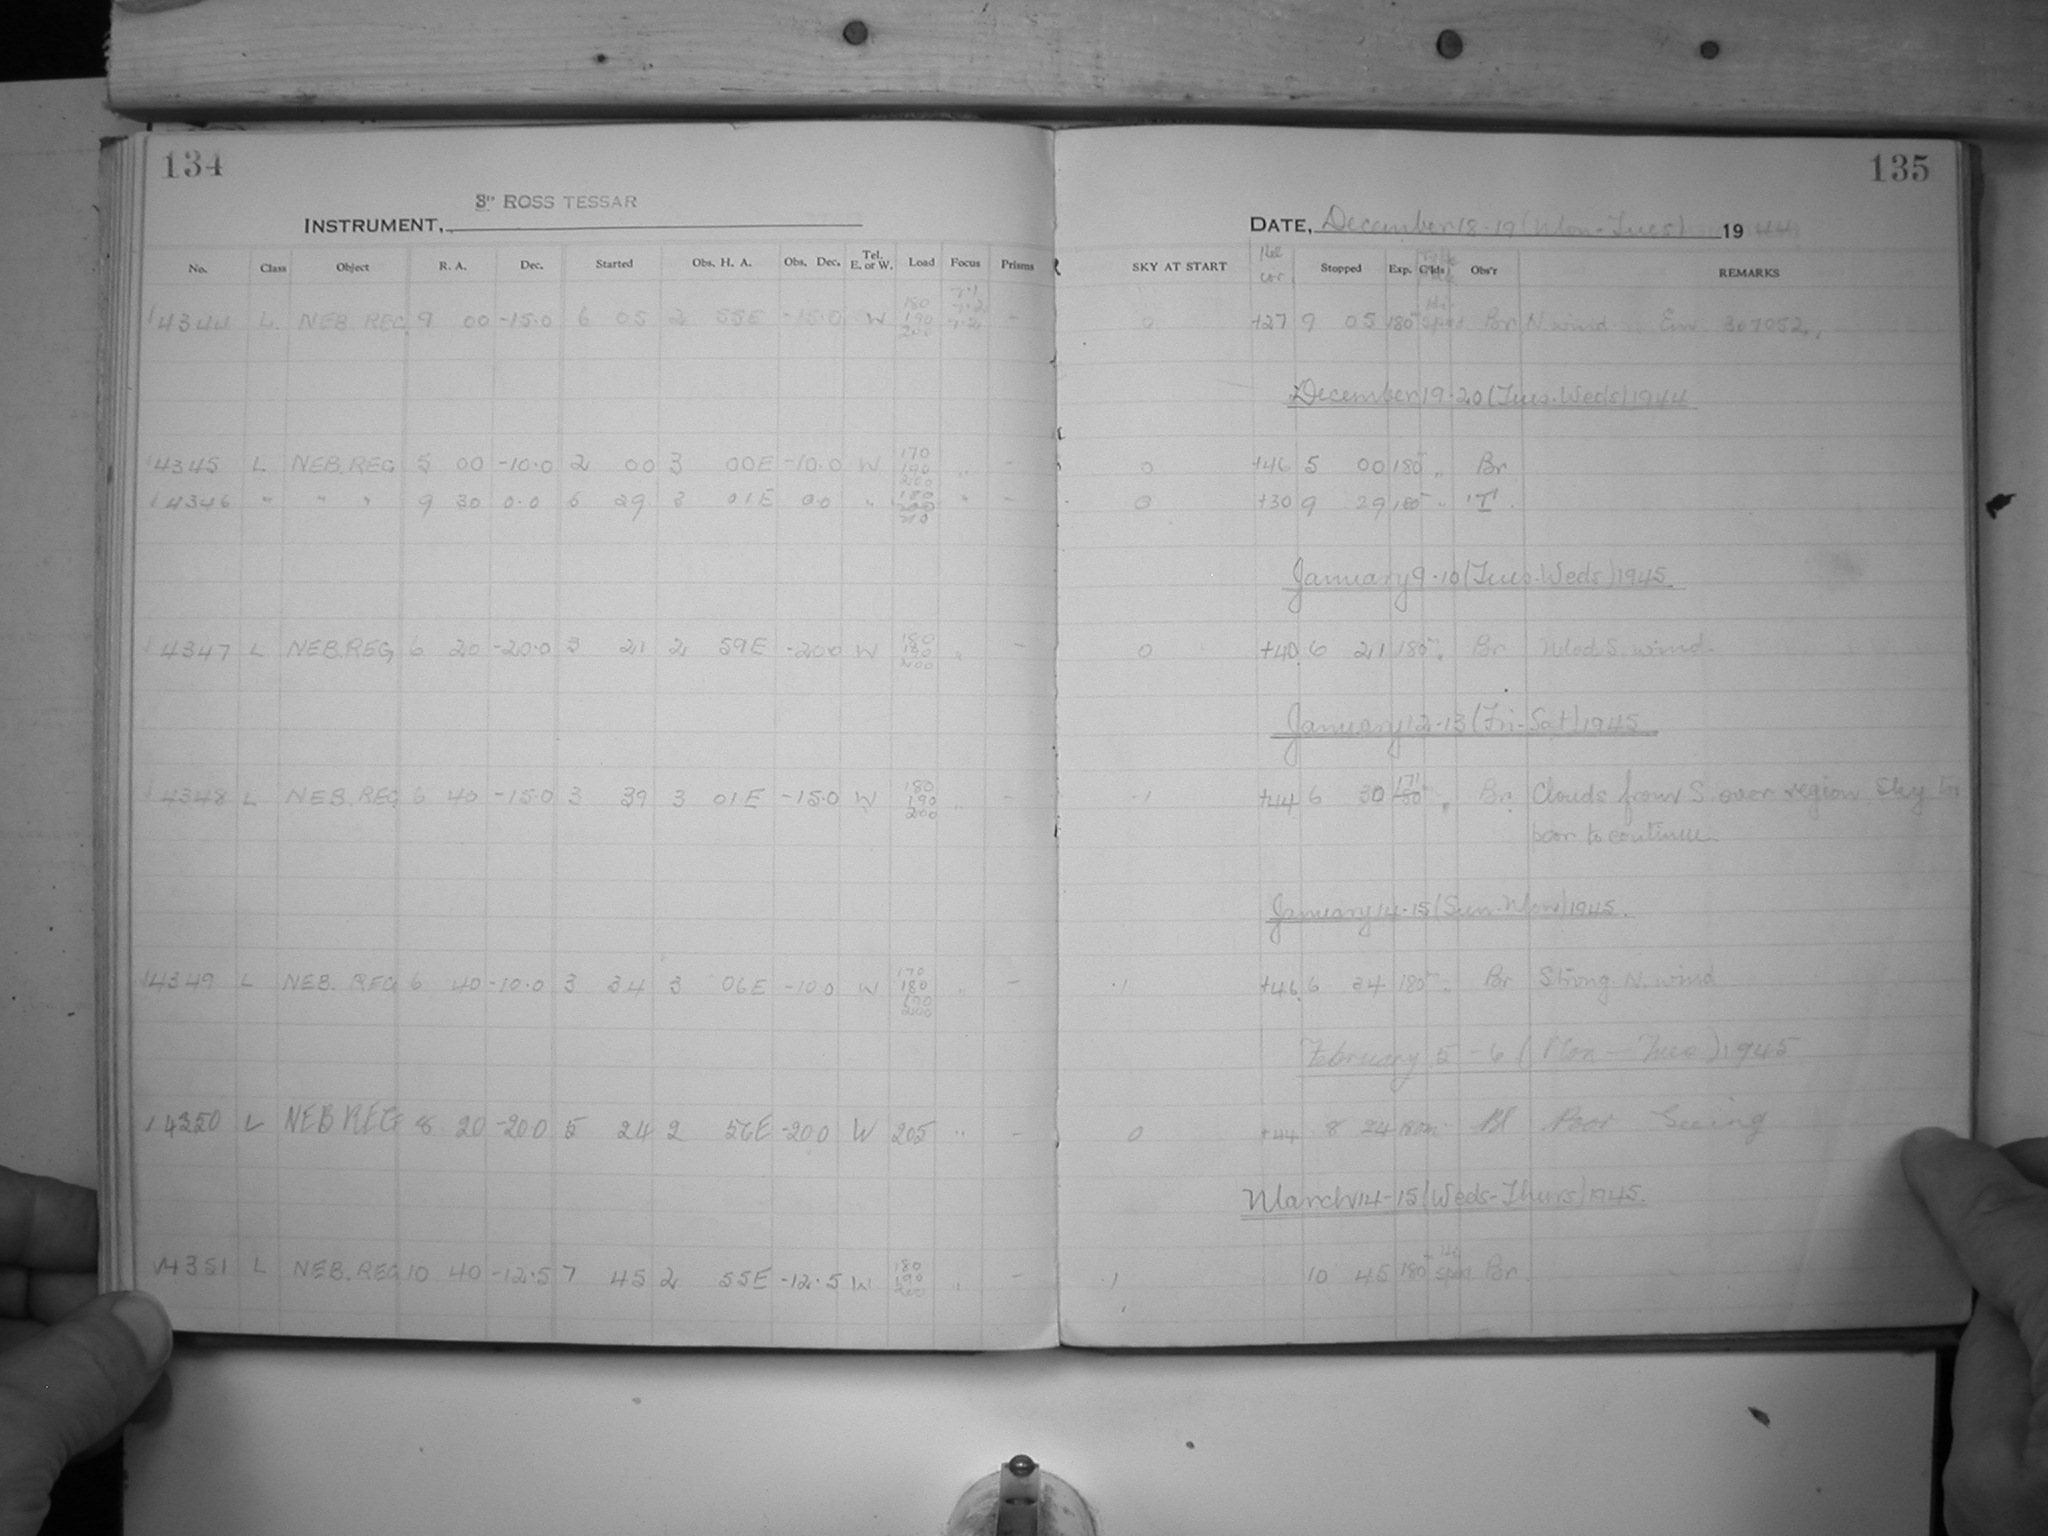 134
3" ROSS TESSAR
INSTRUMENT,
No. Class Object R. A. Dec. Started Obs. H. A. Obs. Dec. Tel. E. or W. Load Focus Prisms
4344 L. NEB. REG. 9 00 -15.0 6 05 2 55E -15.0 W 180 190 200 -
4345 L NEB. REG 5 00 -10.0 2 00 3 00E -10.0 W 170 190 200 " -
4346 " " " 9 30 0.0 6 29 3 01E 0.0 " 180 210 " -
4347 L NEB. REG 6 20 -20.0 3 21 2 59E -20.0 W 180 200 " -
4348 L NEB. REG 6 40 -15.0 3 39 3 01E -15.0 W 180 190 200 " -
4349 L NEB. REG 6 40 -10.0 3 34 3 06E -10.0 W 170 180 190 200 " -
4350 L NEB REG 8 20 -20.0 5 24 2 56E -20.0 W 205 " -
4351 L NEB. REG 10 40 -12.5 7 45 2 55E -12.5 W 180 190 200 " -
135
DATE, December 18-19 (Mon-Tues) 19 44
SKY AT START Stopped Exp. C'lds Obs'r REMARKS
0 +27 9 05 180 Br N. wind Em. 307052.
December 19-20 (Tues-Weds) 1944
0 +46 5 00 180 " Br
0 +30 9 29 180 " T
January 9-10 (Tues-Weds) 1945.
0 +40 6 21 180m " Br Mod. S. wind
January 12-13 (Fri-Sat) 1945
-1 +44 6 30 171 180m " Br Clouds from S. over region. Sky too
poor to continue
January 14-15 (Sun-Mon) 1945.
.1 +46 6 34 180m " Br Strong N. wind
February 5-6 (Mon-Tues) 1945
0 +44 8 24 180m Bl Poor Seeing
March 14-15 (Weds-Thurs) 1945.
.1 10 45 180 Br